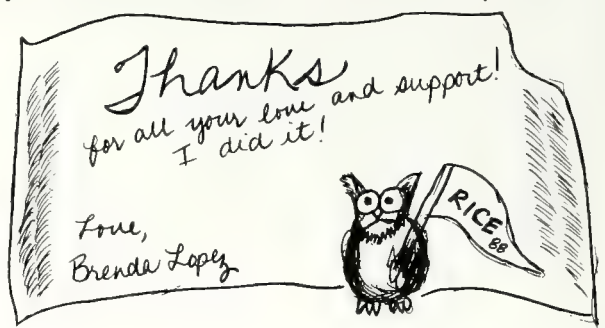 Thanks
for all your love and support!
I did it!
Love,
Brenda Lopez
RICE
88